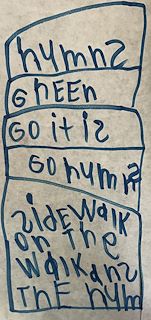 hymns
GhEEn
GO it is
GO hymns
sidEWalk
on The
Walk ans
ThE hym